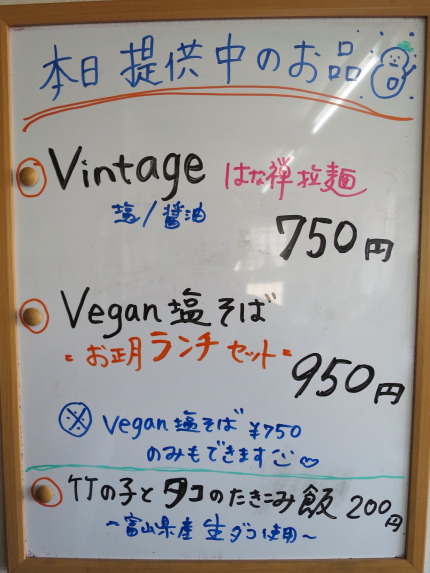 本日提供中のお品
Vintage はな禅拉麺
塩/醤油
750円
Vegan 塩そば
・お正月ランチセット・
950円
※ Vegan 塩そば ¥750
のみもできますご♡
竹の子とタコのたきこみ飯 200円
～富山県産 生ダコ使用～